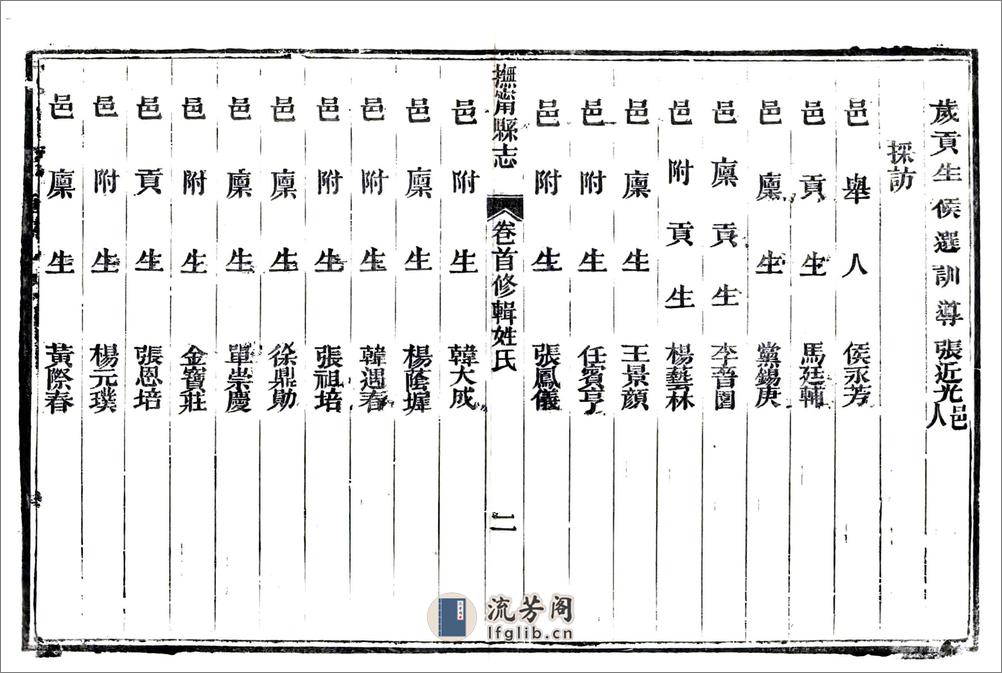 歲貢生候選訓導張近光邑人
採訪
邑舉人侯永芳
邑貢生馬廷輔
邑廩生黨錫庚
邑廩貢生李音圃
邑附貢生楊藝林
邑廩生王景顏
邑附生任賓亨
邑附生張鳳儀
撫甯縣志 卷首修輯姓氏 二
邑附生韓大成
邑廩生楊蔭墀
邑附生韓遇春
邑附生張祖培
邑廩生徐鼎勛
邑廩生單崇慶
邑附生金寶莊
邑貢生張恩培
邑附生楊元璞
邑廩生黃際春
流芳阁
lfglib.cn